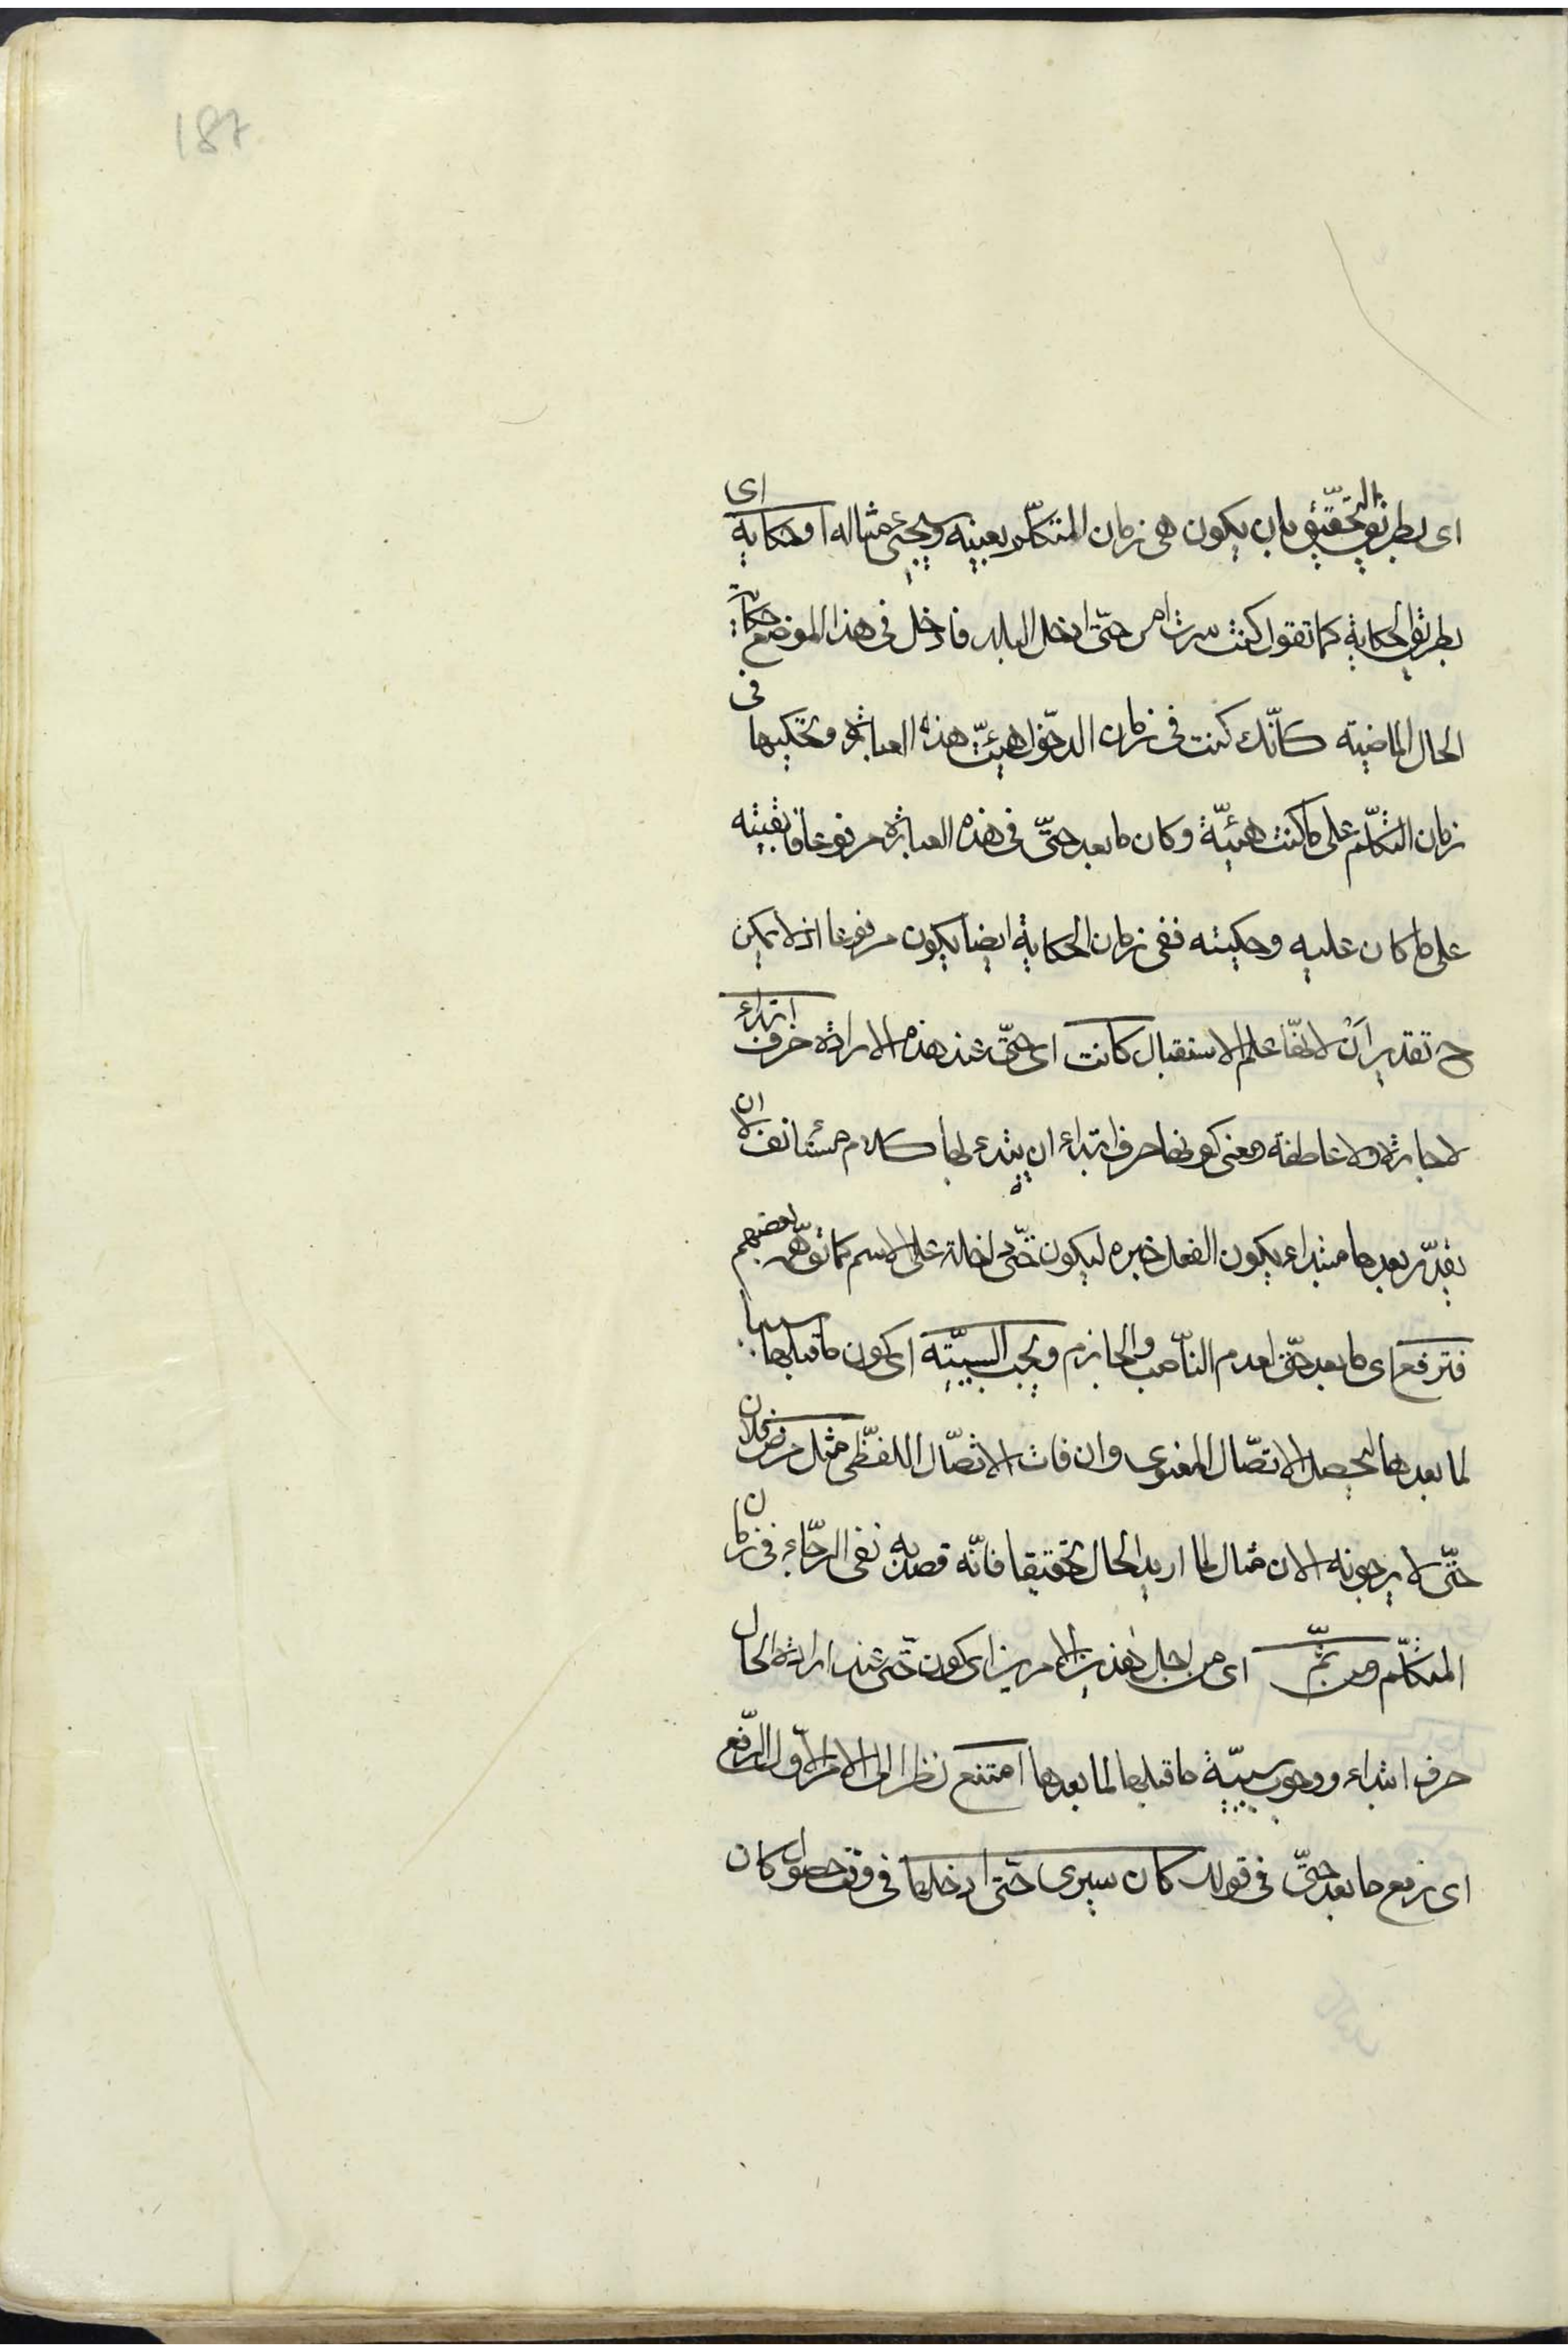 187
اى بطريق التحقيق بان يكون هى زمان المتكلم بعينه وسيجئ مثاله او حكاية اى
بطريق الحكاية كما تقول كنت سرت امس حتّى ادخل البلد فادخل فى هذا الموضع حكاية
الحال الماضية كانّك كنت فى زمان الدخول هيئت هذه العبارة وتحكيها فى
زمان التكلّم على ما كنت هيئّة وكان ما بعد حتّى فى هذه العبارة مرفوعا فابقيته
على ما كان عليه وحكيته ففى زمان الحكاية ايضا يكون مرفوعا اذ لا يمكن
ح تقدير اَنْ لانّها علم الاستقبال كانت اى حتّى عند هذه الارادة حرف ابتداء
لا جارة ولا عاطفة ومعنى كونها حرف ابتداء ان يبتدء بها كلام مستانف لا ان
يقدّر بعدها مبتداء يكون الفعل خبره ليكون حتّى داخلة على الاسم كما توهّم بعضهم
فترفع اى ما بعد حتّى لعدم النّاصب والجازم ويجب السببيّة اى كون ما قبلها سببا
لما بعدها ليحصل الاتصّال المعنوى وان فات الاتصّال اللفظى مثل مرض فلان
حتّى لا يرجونه الان مثال لما اريد الحال تحقيقا فانّه قصد به نفى الرّجاء فى زمان
المتكلّم ومن ثمّ اى من اجل هذين الامرين اى كون حتّى عند ارادة الحال
حرف ابتداء ووجوب سببيّة ما قبلها لما بعدها امتنع نظرا الى الامر الاوّل الرّفع
اى رفع ما بعد حتّى فى قولك كان سيرى حتّى ادخلها فى وقت حصول كان